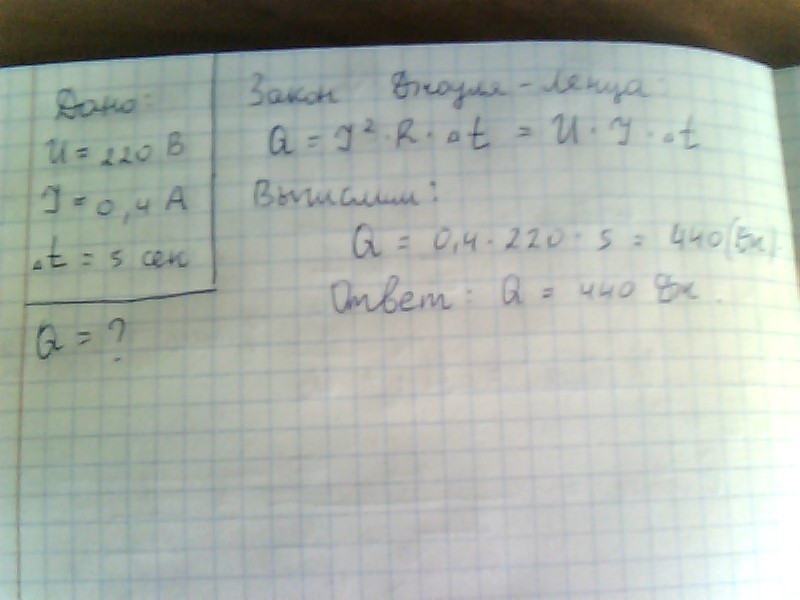 Дано:
U = 220 В
I = 0,4 А
Δt = 5 сек
Q = ?
Закон Джоуля-Ленца:
Q = I² · R · Δt = U · I · Δt
Вычислим:
Q = 0,4 · 220 · 5 = 440 (Дж).
Ответ: Q = 440 Дж.